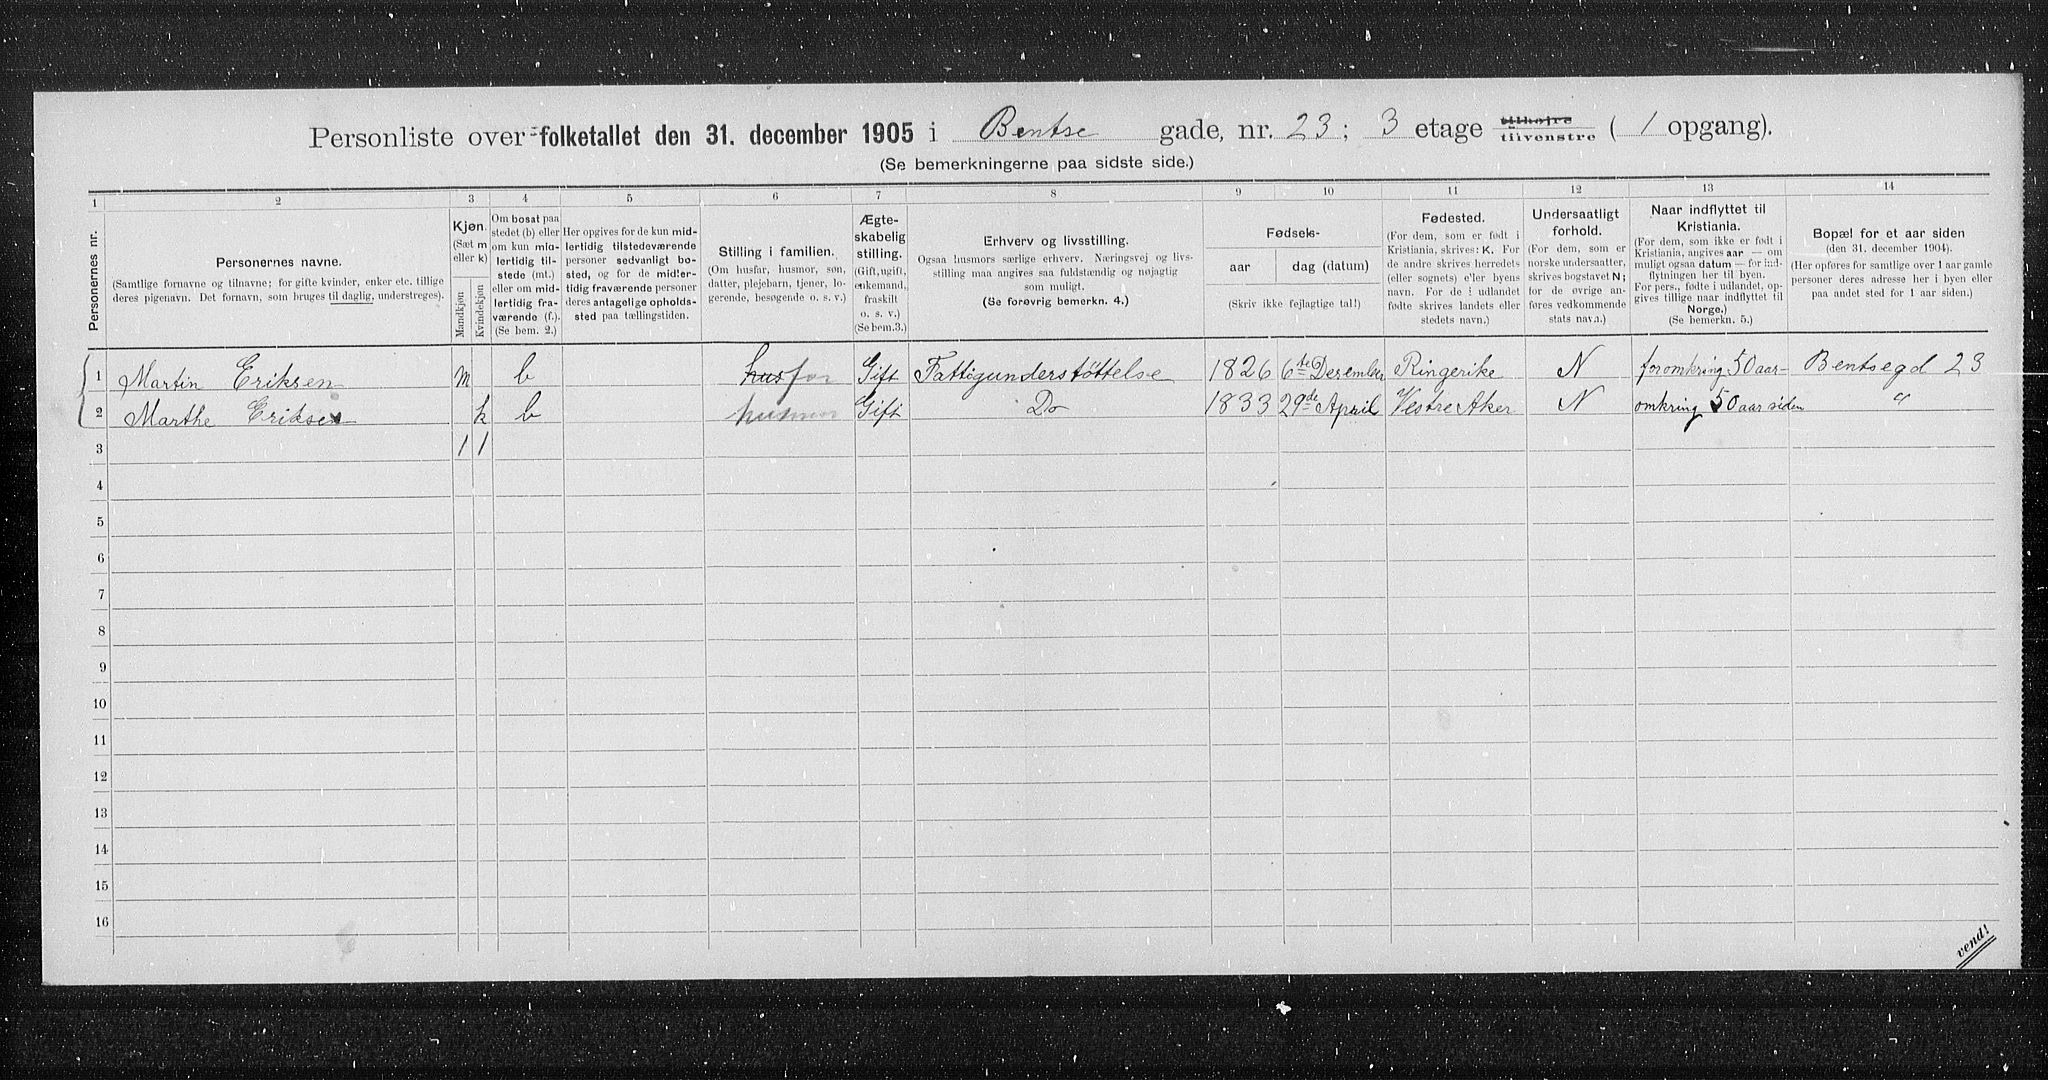 Personliste over folketallet den 31. december 1905 i Bentse gade, nr. 23; 3 etage tilhøire tilvenstre ( 1 opgang).
(Se bemerkningerne paa sidste side.)
1 2 3 4 5 6 7 8 9 10 11 12 13 14
Personernes nr.
Personernes navne.
(Samtlige fornavne og tilnavne; for gifte kvinder, enker etc. tillige
deres pigenavn. Det fornavn, som bruges til daglig, understreges).
Kjøn.
(Sæt m
eller k)
Mandkjøn
Kvindekjøn
Om bosat paa
stedet (b) eller
om kun mid-
lertidig til-
stede (mt.)
eller om mid-
lertidig fra-
værende (f.).
(Se bem. 2.)
Her opgives for de kun mid-
lertidig tilstedeværende
personer sedvanligt bo-
sted, og for de midler-
tidig fraværende personer
deres antagelige opholds-
sted paa tællingstiden.
Stilling i familien.
(Om husfar, husmor, søn,
datter, plejebarn, tjener, lo-
gerende, besøgende o. s. v.)
Ægte-
skabelig
stilling.
(Gift, ugift,
enkemand,
fraskilt
o. s. v.)
(Se bem. 3.)
Erhverv og livsstilling.
Ogsaa husmors særlige erhverv. Næringsvej og livs-
stilling maa angives saa fuldstændig og nøjagtig
som muligt.
(Se forøvrig bemerkn. 4.)
Fødsels-
aar dag (datum)
(Skriv ikke fejlagtige tal!)
Fødested.
(For dem, som er født i
Kristiania, skrives: K. For
de andre skrives herredets
(eller sognets) eller byens
navn. For de i udlandet
fødte skrives landets eller
stedets navn.)
Undersaatligt
forhold.
(For dem, som er
norske undersaatter,
skrives bogstavet N;
for de øvrige an-
føres vedkommende
stats navn.)
Naar indflyttet til
Kristiania.
(For dem, som ikke er født i
Kristiania, angives aar — om
muligt ogsaa datum — for ind-
flytningen her til byen.
For pers., fødte i udlandet, op-
gives tillige naar indflyttet til
Norge.)
(Se bemerkn. 5.)
Bopæl for et aar siden
(den 31. december 1904).
(Her opføres for samtlige over 1 aar gamle
personer deres adresse her i byen eller
paa andet sted for 1 aar siden.)
1 Martin Eriksen m b husfar Gift Fattigunderstøttelse 1826 6te Desember Ringerike N for omkring 50 aar- Bentsegd 23
2 Marthe Eriksen k b husmor Gift Do 1833 29de April Vestre Aker N omkring 50 aar siden "
3 1 1
4
5
6
7
8
9
10
11
12
13
14
15
16
vend!